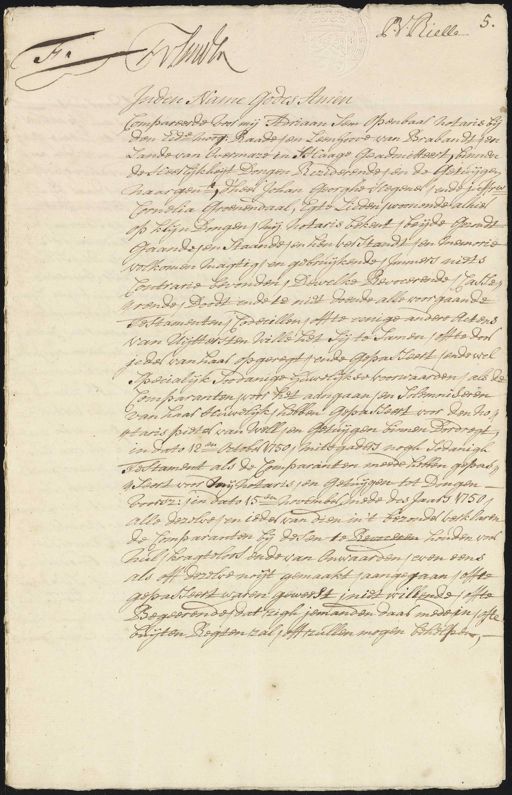 5.
In den Name Godes Amen
Compareerde voor mij Adriaan Openbaar Notaris bij
den Ed: Raade en Leenhove van Brabandt, en
Lande van Overmaze in 's Hage Geadmitteert, binnen
de Heerlijkheijt Dongen Residerende, en de Getuijgen
naargent: Johan George Wegener, ende
Cornelia Groenendaal, Egte Lieden, woonende alhier
op klijn Dongen, Mij Notaris bekent, beijde Gesondt
Gaande, en Staande, en hun verstandt, en Memorie
volkomen magtig, en gebruijkende, Immers niets
Contrarie bevonden, Dewelke Revoceerende, Casse-
rende, Doodt ende te niet doende alle voorgaande
Testamenten, Codecillen, ofte eenige andere Actens
van Uijttersten Wille het sij te Samen, ofte door
jeder van haar opgeregt, ende Gepasseert, ende wel
Specialijk Soodanige Huwelijkse voorwaarden, als de
Comparanten voor het aangaan, en Solemniseren
van haar Huuwelijk, hebben Gepasseert voor den No-
taris van Well, en Getuijgen binnen Dordregt,
in dato 12en Octob: 1750, Mitsgaders nogh Sodanigh
Testament als de Comparanten meede hebben gepas-
seert voor mij Notaris, en Getuijgen tot Dongen
voorsz: in dato 15en November mede des Jaars 1750,
alle deselve, en ieder van dien in't bezonder verklaren
de Comparanten bij desen te Revoceren houden van
nul, kragteloos ende van Onwaarden, even eens
als off deselve noijt gemaakt, aangegaan, ofte
gepasseert waren geweest, niet willende, ofte
Begeerende, dat zigh iemanden daar mede in, ofte
buijten Regten zal, off zullen mogen behelpen,